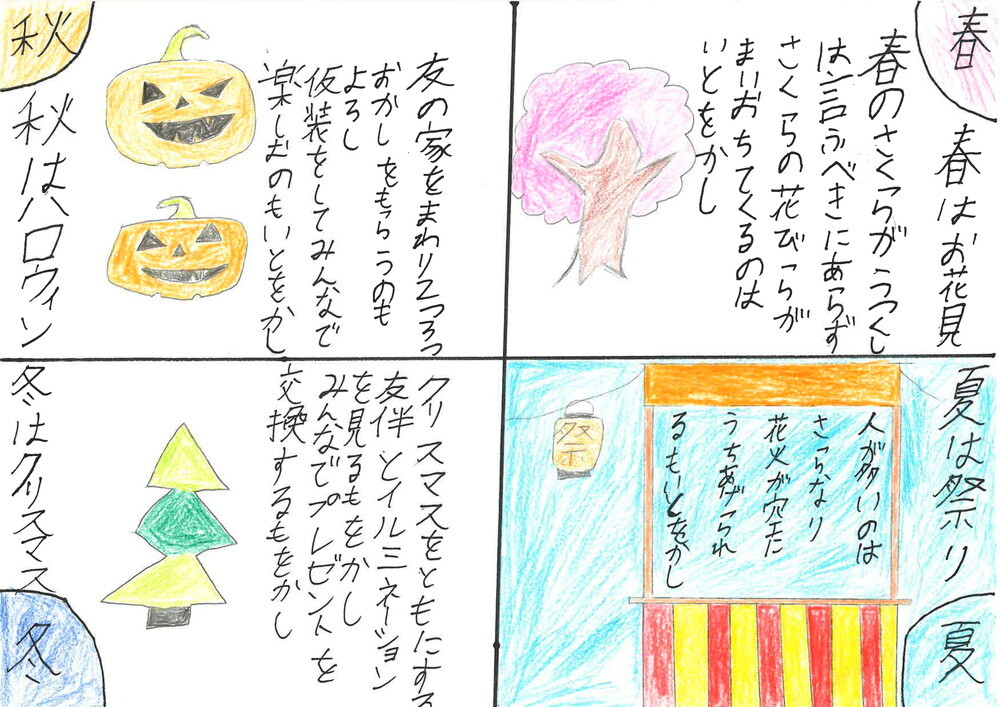 春
春はお花見
春のさくらがうつくし
は言ふべきにあらず
さくらの花びらが
まいおちてくるのは
いとをかし
夏は祭り
夏
人が多いのは
さらなり
花火が空に
うちあげられ
るもいとをかし
祭
秋
秋はハロウィン
友の家をまわり
おかしをもらうのも
よろし
仮装をしてみんなで
楽しむのもいとをかし
冬はクリスマス
冬
クリスマスをともにする
友伴とイルミネーション
を見るもをかし
みんなでプレゼントを
交換するもをかし